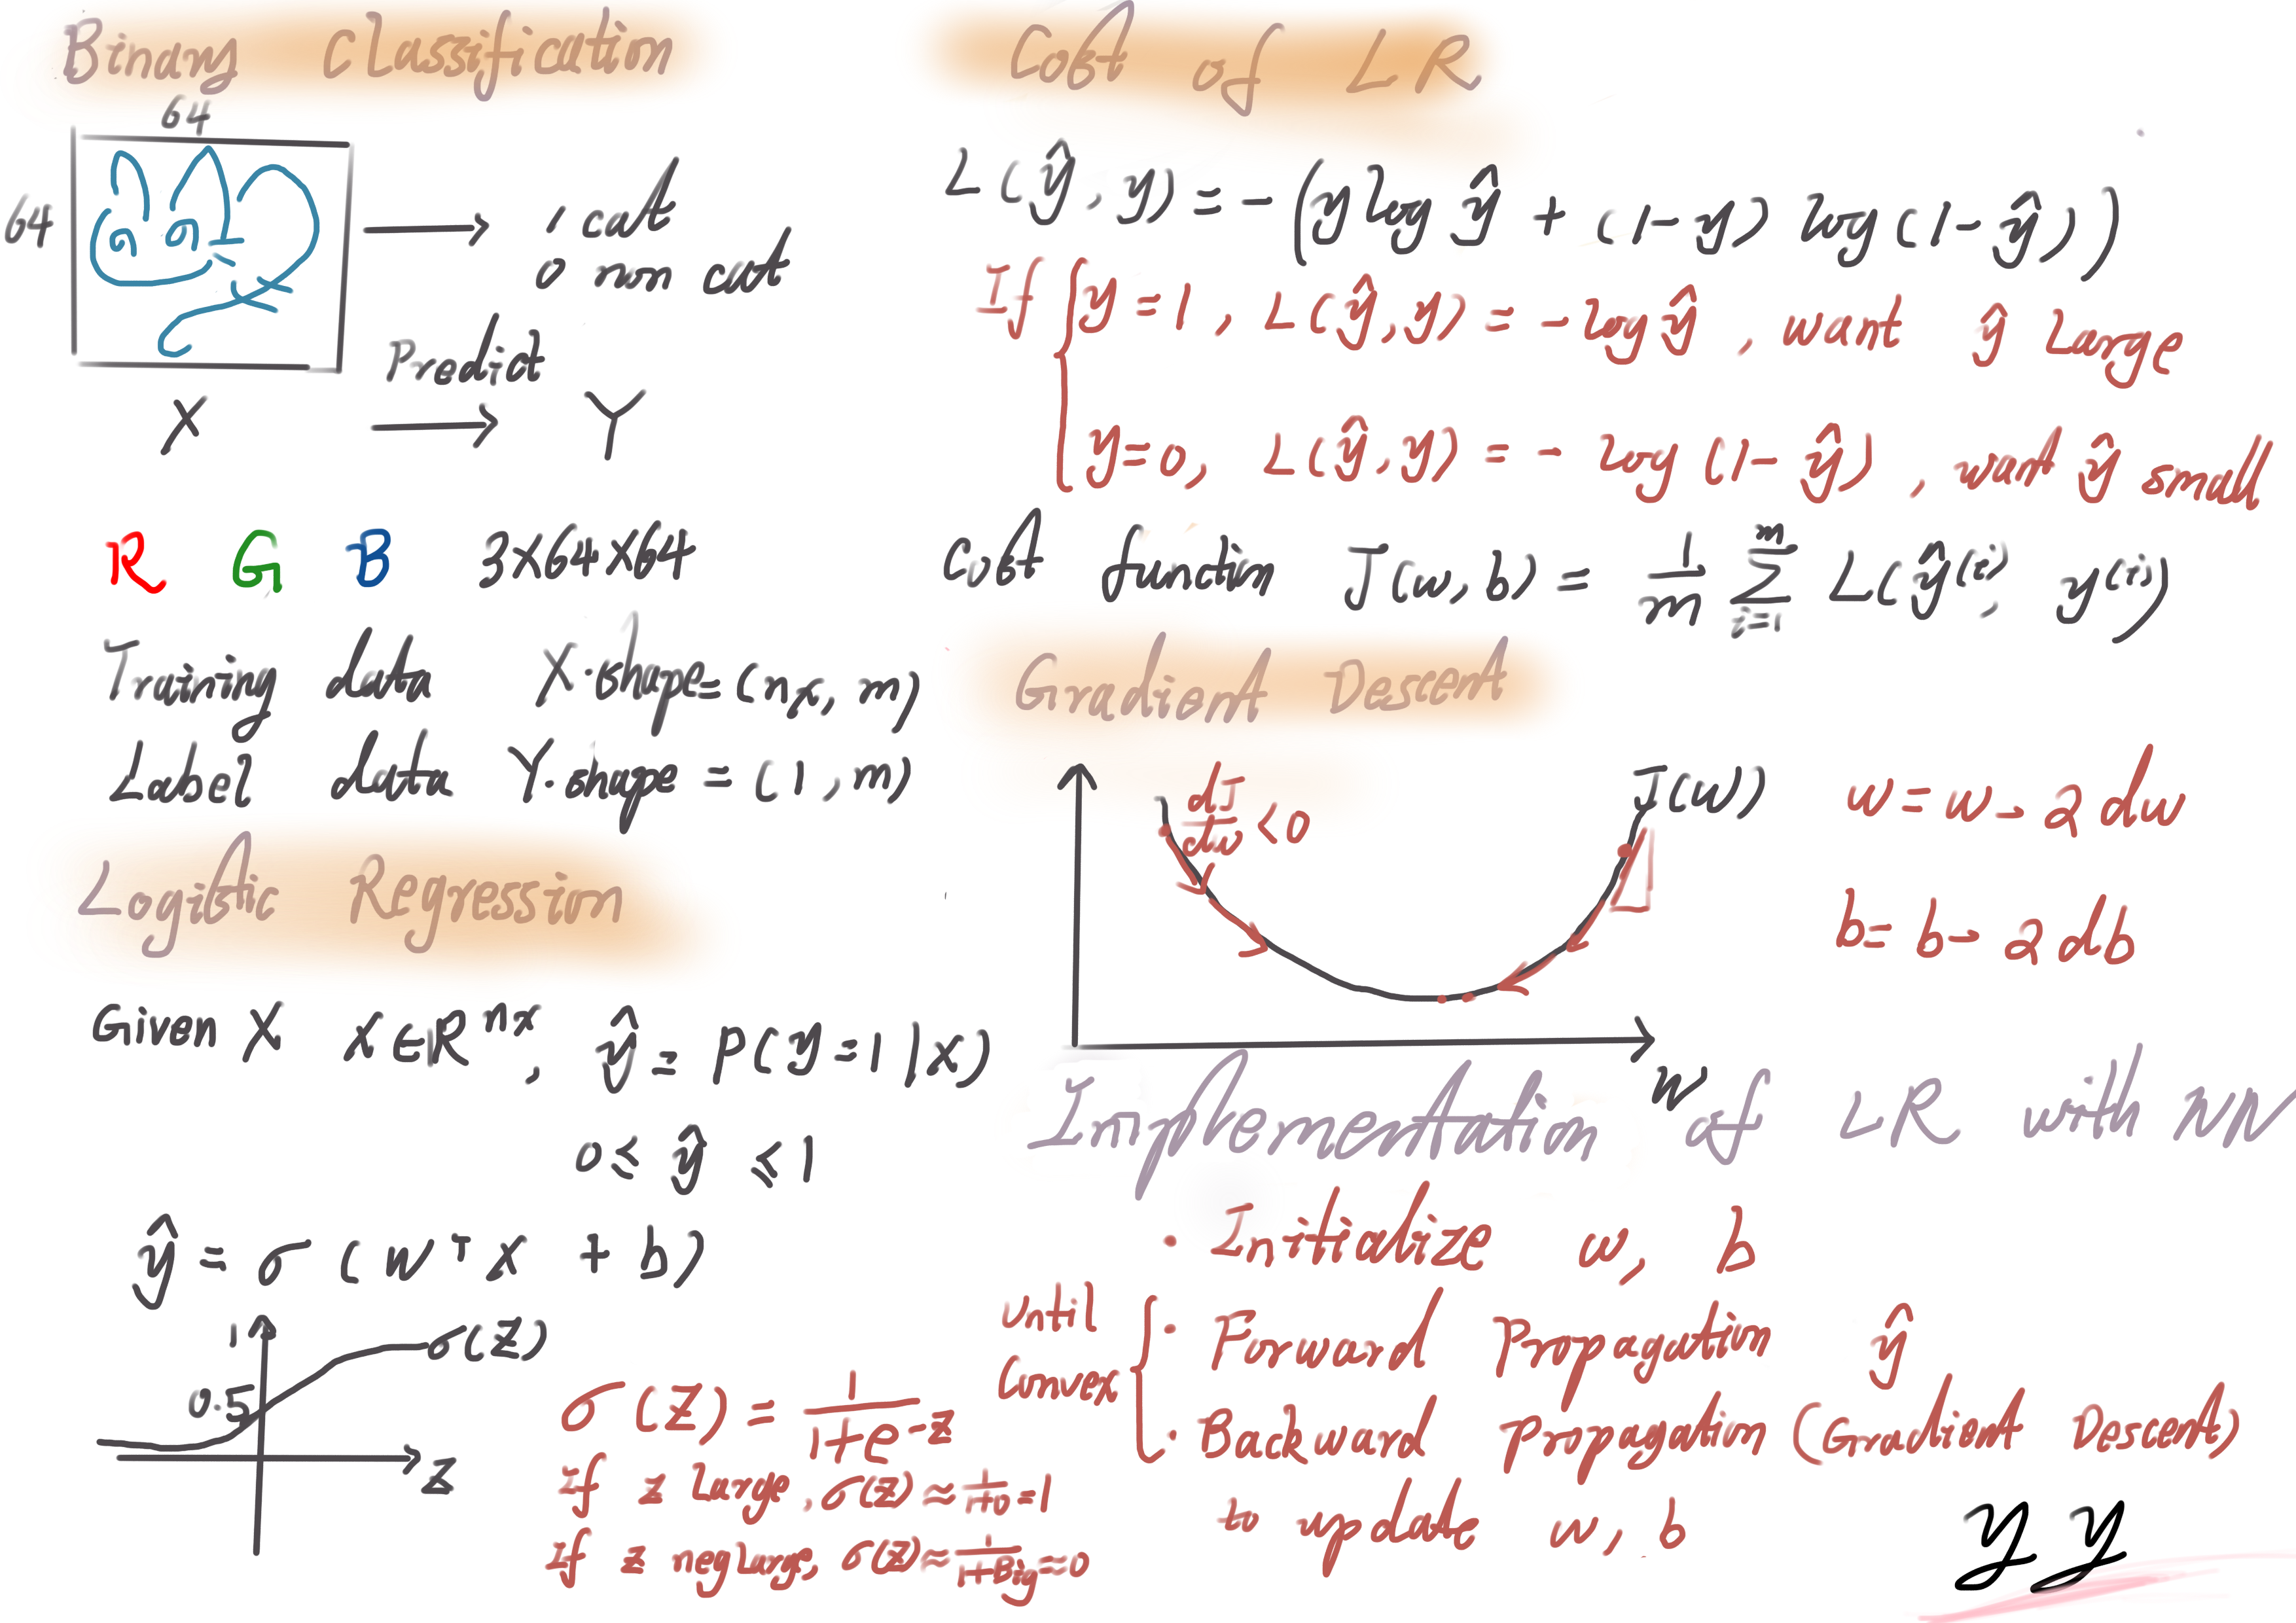 Binary Classification
64
64
1 cat
0 non cat
Predict
X → Y
R G B 3×64×64
Training data X.shape=(nx, m)
Label data Y.shape = (1, m)
Logistic Regression
Given X X∈R^nx, ŷ = P(y=1|X)
0≤ ŷ ≤1
ŷ = σ (W^T X + b)
1
σ(Z)
0.5
Z
σ(Z) = 1/(1+e^-z)
If z Large, σ(z)≈1/(1+0)=1
If z neg Large, σ(z)≈1/(1+Big)≈0
Cost of LR
L(ŷ, y) = -(y log ŷ + (1-y) log(1-ŷ))
If { y=1, L(ŷ,y) = -log ŷ, want ŷ Large
y=0, L(ŷ,y) = - log (1-ŷ), want ŷ small
Cost function J(w, b) = 1/m Σ_{i=1}^{m} L(ŷ^(i), y^(i))
Gradient Descent
dJ/dw <0
J(w)
w = w - 2 dw
b = b - 2 db
W
Implementation of LR with NN
· Initialize w, b
Until Convex { · Forward Propagation ŷ
· Backward Propagation (Gradient Descent)
to update w, b
yy